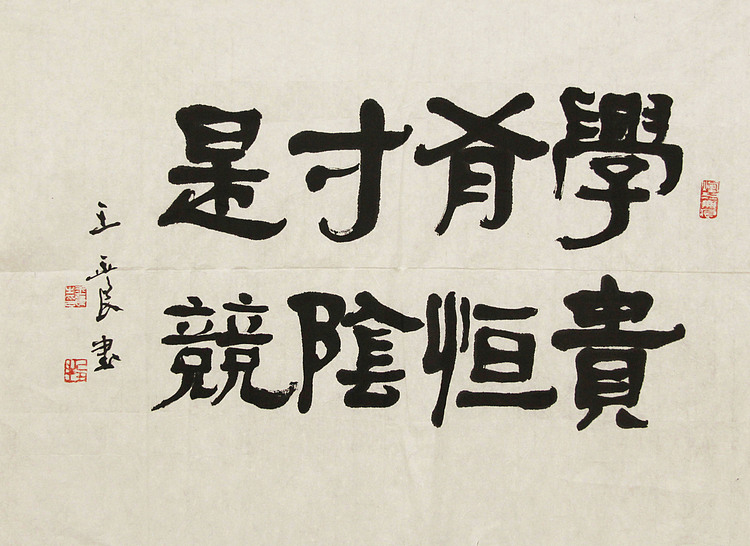 學貴
有恒
寸陰
是競
王亚良書